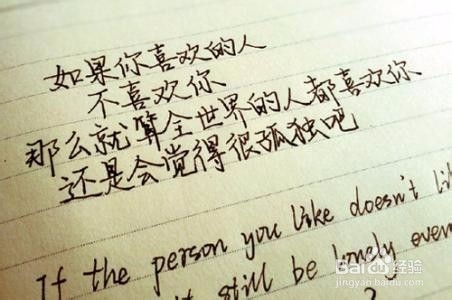 如果你喜欢的人
不喜欢你
那么就算全世界的人都喜欢你
还是会觉得很孤独吧
If the person you like doesn't li
still be lonely even
Baidu经验
jingyan.baidu.com